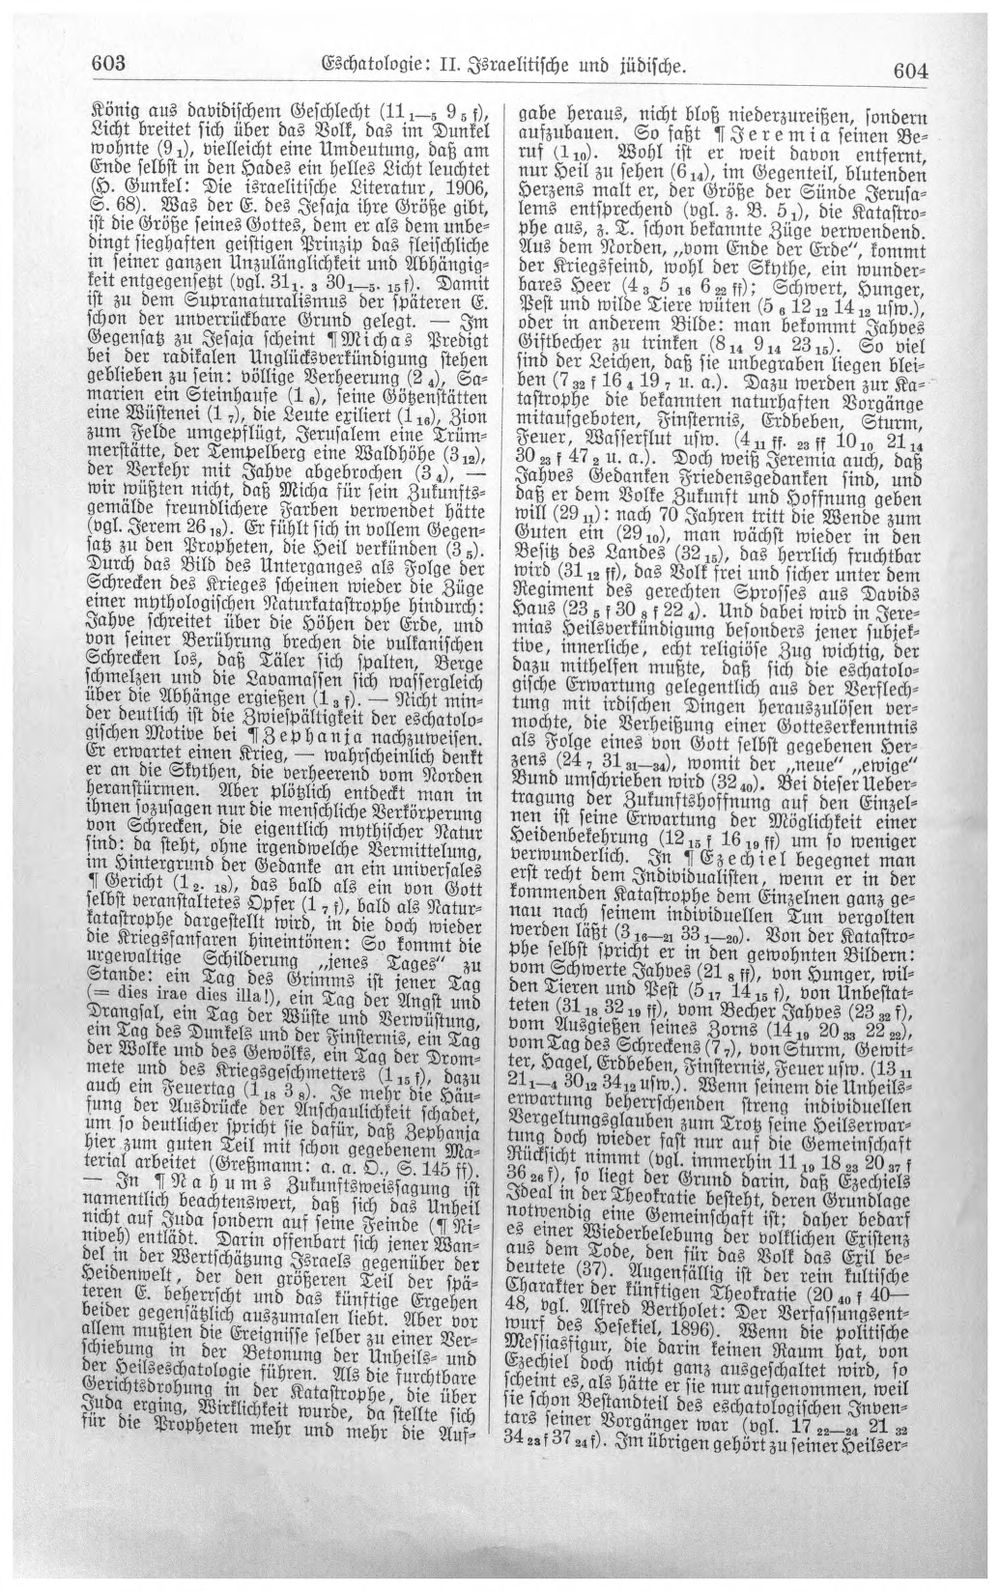 603
Eschatologie: II. Israelitische und jüdische.
604
König aus davidischem Geschlecht (11 1—5 9 5 f),
Licht breitet sich über das Volk, das im Dunkel
wohnte (9 1), vielleicht eine Umdeutung, daß am
Ende selbst in den Hades ein helles Licht leuchtet
(H. Gunkel: Die israelitische Literatur, 1906,
S. 68). Was der E. des Jesaja ihre Größe gibt,
ist die Größe seines Gottes, dem er als dem unbe-
dingt sieghaften geistigen Prinzip das fleischliche
in seiner ganzen Unzulänglichkeit und Abhängig-
keit entgegensetzt (vgl. 31 1. 3 30 1—5. 15 f). Damit
ist zu dem Supranaturalismus der späteren E.
schon der unverrückbare Grund gelegt. — Im
Gegensatz zu Jesaja scheint ¶ Michas Predigt
bei der radikalen Unglücksverkündigung stehen
geblieben zu sein: völlige Verheerung (2 4), Sa-
marien ein Steinhaufe (1 6), seine Götzenstätten
eine Wüstenei (1 7), die Leute exiliert (1 16), Zion
zum Felde umgepflügt, Jerusalem eine Trüm-
merstätte, der Tempelberg eine Waldhöhe (3 12),
der Verkehr mit Jahve abgebrochen (3 4), —
wir wüßten nicht, daß Micha für sein Zukunfts-
gemälde freundlichere Farben verwendet hätte
(vgl. Jerem 26 18). Er fühlt sich in vollem Gegen-
satz zu den Propheten, die Heil verkünden (3 5).
Durch das Bild des Unterganges als Folge der
Schrecken des Krieges scheinen wieder die Züge
einer mythologischen Naturkatastrophe hindurch:
Jahve schreitet über die Höhen der Erde, und
von seiner Berührung brechen die vulkanischen
Schrecken los, daß Täler sich spalten, Berge
schmelzen und die Lavamassen sich wassergleich
über die Abhänge ergießen (1 3 f). — Nicht min-
der deutlich ist die Zwiespältigkeit der eschatolo-
gischen Motive bei ¶ Zephanja nachzuweisen.
Er erwartet einen Krieg, — wahrscheinlich denkt
er an die Skythen, die verheerend vom Norden
heranstürmen. Aber plötzlich entdeckt man in
ihnen sozusagen nur die menschliche Verkörperung
von Schrecken, die eigentlich mythischer Natur
sind: da steht, ohne irgendwelche Vermittelung,
im Hintergrund der Gedanke an ein universales
¶ Gericht (1 2. 18), das bald als ein von Gott
selbst veranstaltetes Opfer (1 7 f), bald als Natur-
katastrophe dargestellt wird, in die doch wieder
die Kriegsfanfaren hineintönen: So kommt die
urgewaltige Schilderung „jenes Tages“ zu
Stande: ein Tag des Grimms ist jener Tag
(= dies irae dies illa!), ein Tag der Angst und
Drangsal, ein Tag der Wüste und Verwüstung,
ein Tag des Dunkels und der Finsternis, ein Tag
der Wolke und des Gewölks, ein Tag der Drom-
mete und des Kriegsgeschmetters (1 15 f), dazu
auch ein Feuertag (1 18 3 8). Je mehr die Häu-
fung der Ausdrücke der Anschaulichkeit schadet,
um so deutlicher spricht sie dafür, daß Zephanja
hier zum guten Teil mit schon gegebenem Ma-
terial arbeitet (Greßmann: a. a. O., S. 145 ff).
— In ¶ Nahums Zukunftsweissagung ist
namentlich beachtenswert, daß sich das Unheil
nicht auf Juda sondern auf seine Feinde (¶ Ni-
niveh) entlädt. Darin offenbart sich jener Wan-
del in der Wertschätzung Israels gegenüber der
Heidenwelt, der den größeren Teil der spä-
teren E. beherrscht und das künftige Ergehen
beider gegensätzlich auszumalen liebt. Aber vor
allem mußten die Ereignisse selber zu einer Ver-
schiebung in der Betonung der Unheils- und
der Heilseschatologie führen. Als die furchtbare
Gerichtsdrohung in der Katastrophe, die über
Juda erging, Wirklichkeit wurde, da stellte sich
für die Propheten mehr und mehr die Auf-
gabe heraus, nicht bloß niederzureißen, sondern
aufzubauen. So faßt ¶ Jeremia seinen Be-
ruf (1 10). Wohl ist er weit davon entfernt,
nur Heil zu sehen (6 14), im Gegenteil, blutenden
Herzens malt er, der Größe der Sünde Jerusa-
lems entsprechend (vgl. z. B. 5 1), die Katastro-
phe aus, z. T. schon bekannte Züge verwendend.
Aus dem Norden, „vom Ende der Erde“, kommt
der Kriegsfeind, wohl der Skythe, ein wunder-
bares Heer (4 3 5 16 6 22 ff); Schwert, Hunger,
Pest und wilde Tiere wüten (5 6 12 12 14 12 usw.),
oder in anderem Bilde: man bekommt Jahves
Giftbecher zu trinken (8 14 9 14 23 15). So viel
sind der Leichen, daß sie unbegraben liegen blei-
ben (7 32 f 16 4 19 7 u. a.). Dazu werden zur Ka-
tastrophe die bekannten naturhaften Vorgänge
mitaufgeboten, Finsternis, Erdbeben, Sturm,
Feuer, Wasserflut usw. (4 11 ff. 23 ff 10 10 21 14
30 23 f 47 2 u. a.). Doch weiß Jeremia auch, daß
Jahves Gedanken Friedensgedanken sind, und
daß er dem Volke Zukunft und Hoffnung geben
will (29 11): nach 70 Jahren tritt die Wende zum
Guten ein (29 10), man wächst wieder in den
Besitz des Landes (32 15), das herrlich fruchtbar
wird (31 12 ff), das Volk frei und sicher unter dem
Regiment des gerechten Sprosses aus Davids
Haus (23 5 f 30 8 f 22 4). Und dabei wird in Jere-
mias Heilsverkündigung besonders jener subjek-
tive, innerliche, echt religiöse Zug wichtig, der
dazu mithelfen mußte, daß sich die eschatolo-
gische Erwartung gelegentlich aus der Verflech-
tung mit irdischen Dingen herauszulösen ver-
mochte, die Verheißung einer Gotteserkenntnis
als Folge eines von Gott selbst gegebenen Her-
zens (24 7 31 31—34), womit der „neue“ „ewige“
Bund umschrieben wird (32 40). Bei dieser Ueber-
tragung der Zukunftshoffnung auf den Einzel-
nen ist seine Erwartung der Möglichkeit einer
Heidenbekehrung (12 15 f 16 19 ff) um so weniger
verwunderlich. In ¶ Ezechiel begegnet man
erst recht dem Individualisten, wenn er in der
kommenden Katastrophe dem Einzelnen ganz ge-
nau nach seinem individuellen Tun vergolten
werden läßt (3 16—21 33 1—20). Von der Katastro-
phe selbst spricht er in den gewohnten Bildern:
vom Schwerte Jahves (21 8 ff), von Hunger, wil-
den Tieren und Pest (5 17 14 15 f), von Unbestat-
teten (31 18 32 19 ff), vom Becher Jahves (23 32 f),
vom Ausgießen seines Zorns (14 19 20 33 22 22),
vom Tag des Schreckens (7 7), von Sturm, Gewit-
ter, Hagel, Erdbeben, Finsternis, Feuer usw. (13 11
21 1—4 30 12 34 12 usw.). Wenn seinem die Unheils-
erwartung beherrschenden streng individuellen
Vergeltungsglauben zum Trotz seine Heilserwar-
tung doch wieder fast nur auf die Gemeinschaft
Rücksicht nimmt (vgl. immerhin 11 19 18 23 20 37 f
36 26 f), so liegt der Grund darin, daß Ezechiels
Ideal in der Theokratie besteht, deren Grundlage
notwendig eine Gemeinschaft ist; daher bedarf
es einer Wiederbelebung der volklichen Existenz
aus dem Tode, den für das Volk das Exil be-
deutete (37). Augenfällig ist der rein kultische
Charakter der künftigen Theokratie (20 40 f 40—
48, vgl. Alfred Bertholet: Der Verfassungsent-
wurf des Hesekiel, 1896). Wenn die politische
Messiasfigur, die darin keinen Raum hat, von
Ezechiel doch nicht ganz ausgeschaltet wird, so
scheint es, als hätte er sie nur aufgenommen, weil
sie schon Bestandteil des eschatologischen Inven-
tars seiner Vorgänger war (vgl. 17 22—24 21 32
34 23 f 37 24 f). Im übrigen gehört zu seiner Heilser-